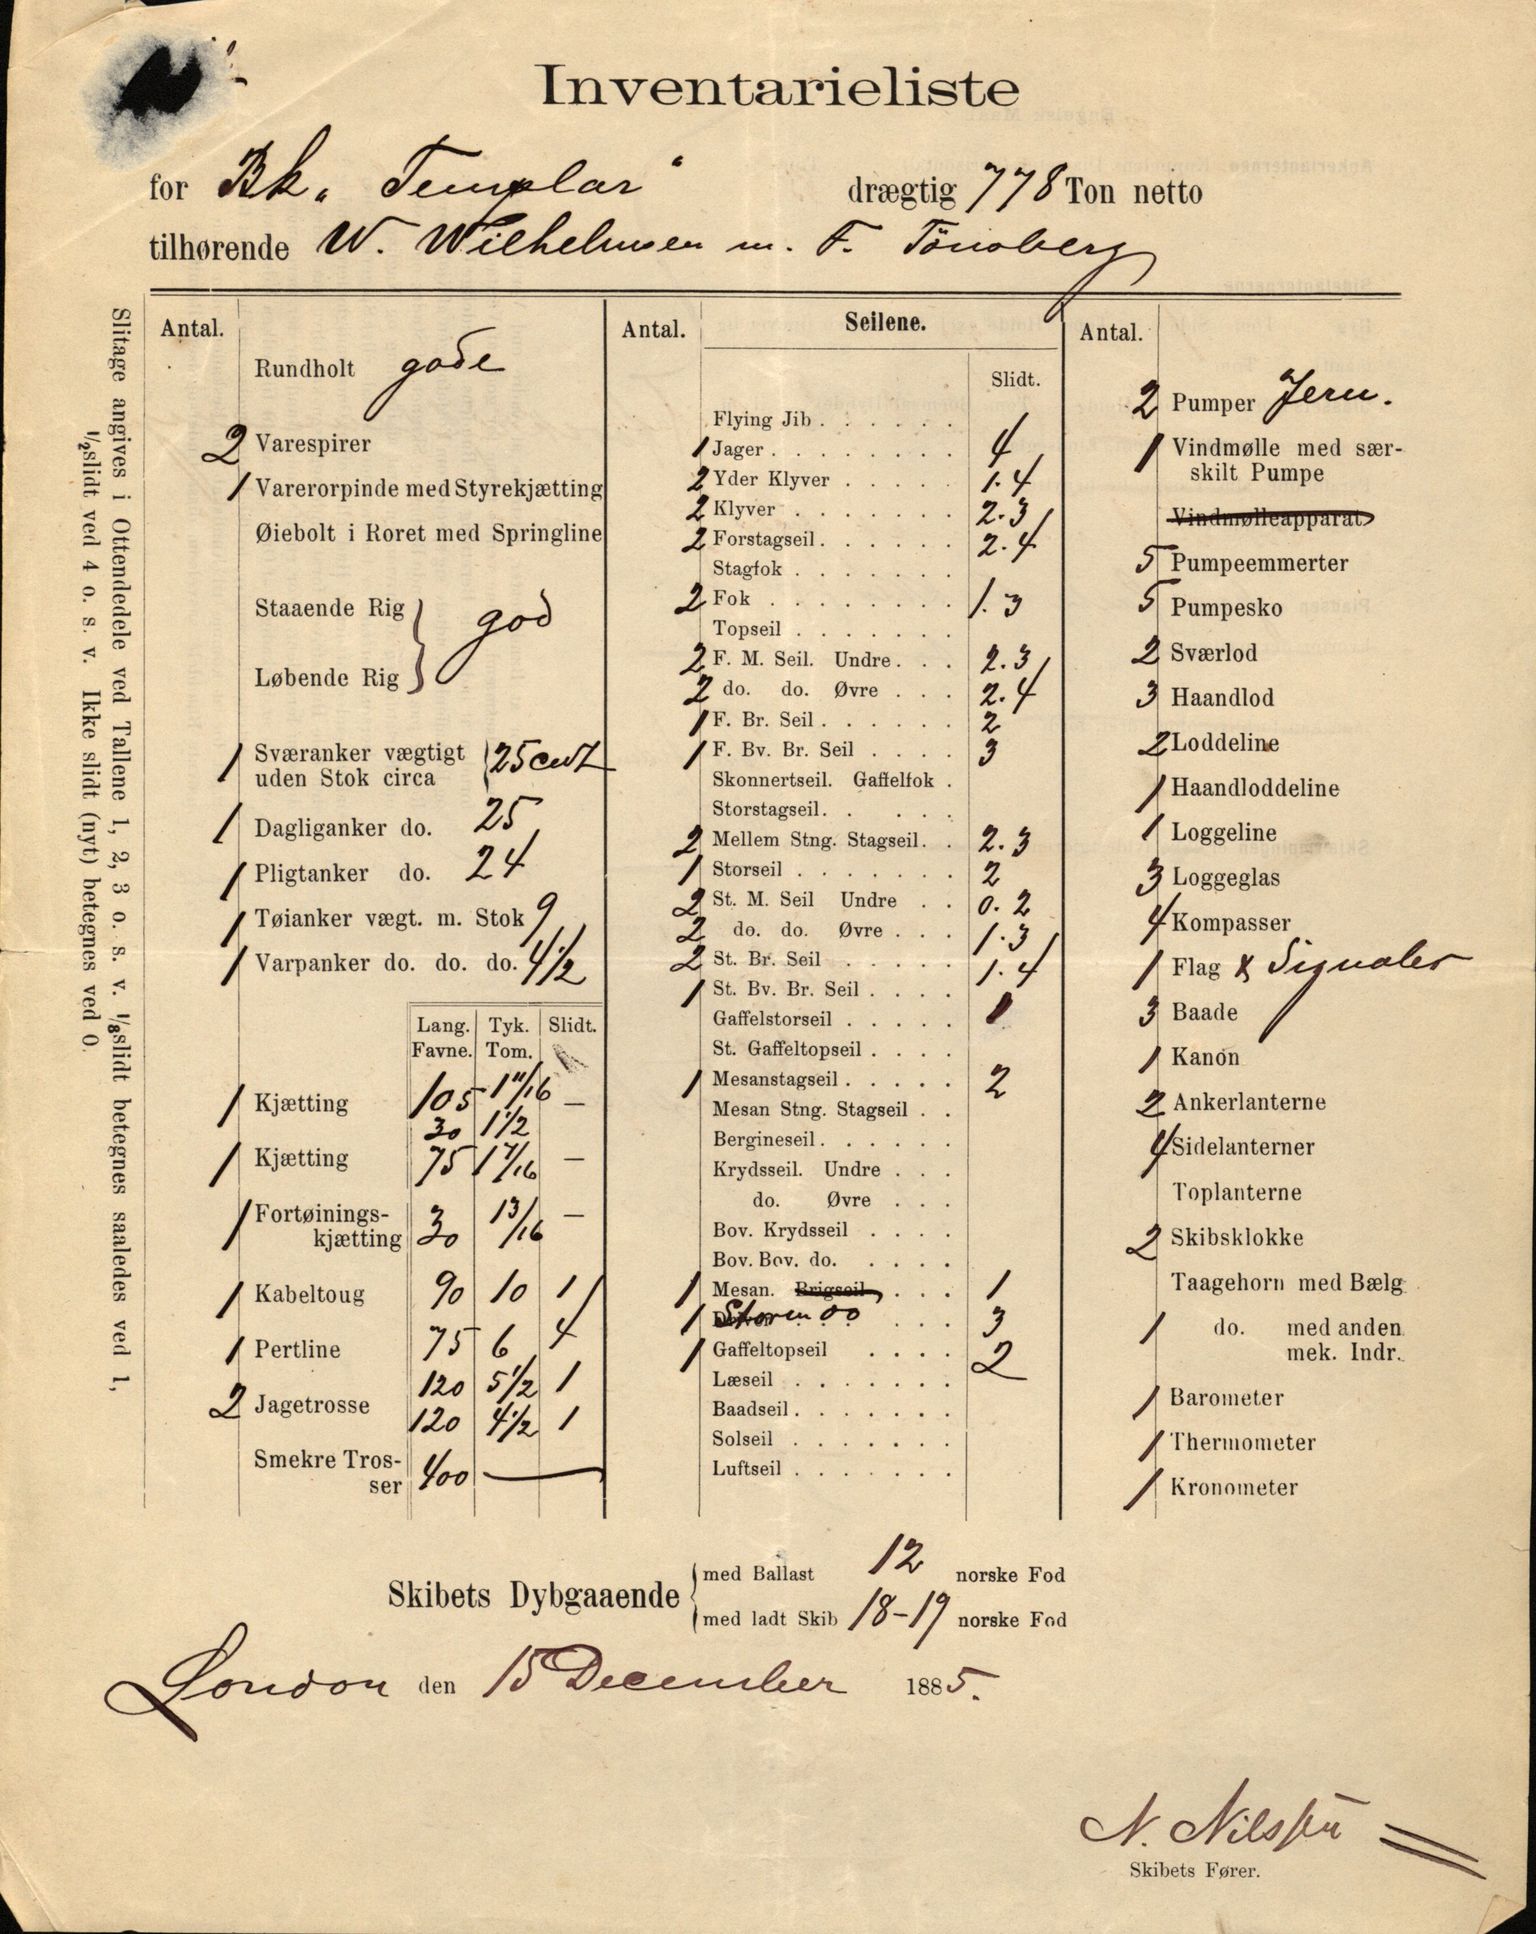 Inventarieliste
for Bk. "Templar" drægtig 778 Ton netto
tilhørende W. Wilhelmsen m. F. Tönsberg
Slitage angives i Ottendedele ved Tallene 1, 2, 3 o. s. v. 1/8 slidt betegnes saaledes ved 1,
1/2 slidt ved 4 o. s. v. Ikke slidt (nyt) betegnes ved 0.
Antal.
Rundholt gode
2 Varespirer
1 Varerorpinde med Styrekjætting
Øiebolt i Roret med Springline
Staaende Rig } god
Løbende Rig
1 Sværanker vægtigt
uden Stok circa { 25 cwt
1 Dagliganker do. 25
1 Pligtanker do. 24
1 Tøianker vægt. m. Stok 9
1 Varpanker do. do. do. 4 1/2
Lang. Tyk. Slidt.
Favne. Tom.
1 Kjætting 105 1 11/16 —
30 1 1/2
1 Kjætting 75 1 7/16 —
1 Fortøinings-
kjætting 30 13/16 —
1 Kabeltoug 90 10 1
1 Pertline 75 6 4
120 5 1/2 1
2 Jagetrosse
120 4 1/2 1
Smekre Tros-
ser 400 —
Antal. Seilene.
Slidt.
Flying Jib . . . . . .
1 Jager . . . . . . . . 4
2 Yder Klyver . . . . . 1.4
2 Klyver . . . . . . . 2.3
2 Forstagseil . . . . . . 2.4
Stagfok . . . . . . .
2 Fok . . . . . . . . 1.3
Topseil . . . . . . .
2 F. M. Seil. Undre . . . 2.3
2 do. do. Øvre . . . 2.4
1 F. Br. Seil . . . . . . 2
1 F. Bv. Br. Seil . . . . 3
Skonnertseil. Gaffelfok .
Storstagseil. . . . .
2 Mellem Stng. Stagseil. . 2.3
1 Storseil . . . . . . . 2
2 St. M. Seil Undre . . 0.2
2 do. do. Øvre . . . 1.3
2 St. Br. Seil . . . . . 1.4
1 St. Bv. Br. Seil . . . . 1
Gaffelstorseil . . . . .
St. Gaffeltopseil . . . .
1 Mesanstagseil . . . . . 2
Mesan Stng. Stagseil . .
Bergineseil . . . . . .
Krydsseil. Undre . . .
do. Øvre . . .
Bov. Krydsseil . . . .
Bov. Bov. do. . . . .
1 Mesan. Brigseil . . . 1
1 Storm do . . . 3
1 Gaffeltopseil . . . . 2
Læseil . . . . . . .
Baadseil . . . . . . .
Solseil . . . . . . .
Luftseil . . . . . . .
Antal.
2 Pumper Jern.
1 Vindmølle med sær-
skilt Pumpe
Vindmølleapparat
5 Pumpeemmerter
5 Pumpesko
2 Sværlod
3 Haandlod
2 Loddeline
1 Haandloddeline
1 Loggeline
3 Loggeglas
4 Kompasser
1 Flag & Signaler
3 Baade
1 Kanon
2 Ankerlanterne
4 Sidelanterner
Toplanterne
2 Skibsklokke
Taagehorn med Bælg
1 do. med anden
mek. Indr.
1 Barometer
1 Thermometer
1 Kronometer
Skibets Dybgaaende { med Ballast 12 norske Fod
med ladt Skib 18-19 norske Fod
London den 15 December 1885.
N. Nilssen
Skibets Fører.